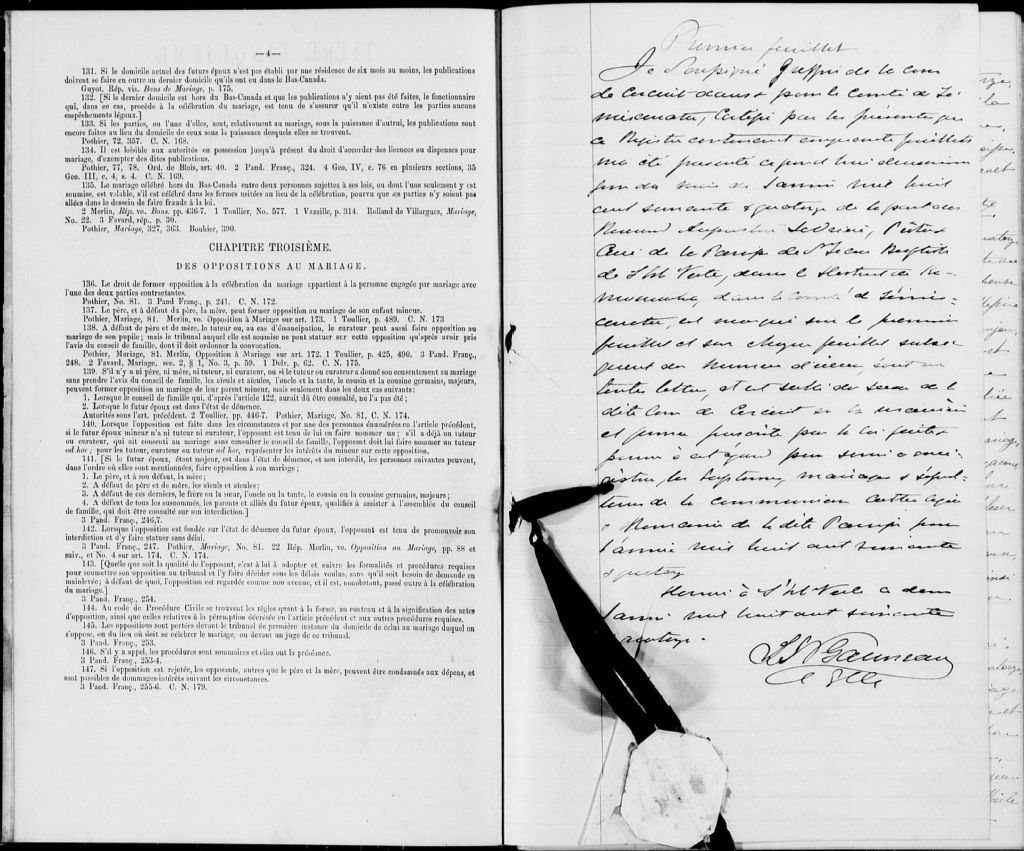 — 4 —
131. Si le domicile actuel des futurs époux n'est pas établi par une résidence de six mois au moins, les publications
doivent se faire en outre au dernier domicile qu'ils ont eu dans le Bas-Canada.
Guyot. Rép. vis. Bans de Mariage, p. 175.
132. [Si le dernier domicile est hors du Bas-Canada et que les publications n'y aient pas été faites, le fonctionnaire
qui, dans ce cas, procède à la célébration du mariage, est tenu de s'assurer qu'il n'existe entre les parties aucuns
empêchements légaux.]
133. Si les parties, ou l'une d'elles, sont, relativement au mariage, sous la puissance d'autrui, les publications sont
encore faites au lieu du domicile de ceux sous la puissance desquels elles se trouvent.
Pothier, 72, 357. C. N. 168.
134. Il est loisible aux autorités en possession jusqu'à présent du droit d'accorder des licences ou dispenses pour
mariage, d'exempter des dites publications.
Pothier, 77, 78. Ord. de Blois, art. 40. 2 Pand. Franç., 324. 4 Geo. IV, c. 76 en plusieurs sections, 35
Geo. III, c. 4, s. 4. C. N. 169.
135. Le mariage célébré hors du Bas-Canada entre deux personnes sujettes à ses lois, ou dont l'une seulement y est
soumise, est valable, s'il est célébré dans les formes usitées au lieu de la célébration, pourvu que ces parties n'y soient pas
allées dans le dessein de faire fraude à la loi.
2 Merlin, Rép. vo. Bans. pp. 436-7. 1 Toullier, No. 577. 1 Vazeille, pp. 314. Rolland de Villargues, Mariage,
No. 22. 3 Favard, rép., p. 30.
Pothier, Mariage, 327, 363. Bouhier, 390.
CHAPITRE TROISIÈME.
DES OPPOSITIONS AU MARIAGE.
136. Le droit de former opposition à la célébration du mariage appartient à la personne engagée par mariage avec
l'une des deux parties contractantes.
Pothier, No. 81. 3 Pand Franç., p. 241. C. N. 172.
137. Le père, et à défaut du père, la mère, peut former opposition au mariage de son enfant mineur.
Pothier, Mariage, 81. Merlin, vo. Opposition à Mariage sur art. 173. 1 Toullier, p. 489. C. N. 173
138. A défaut de père et de mère, le tuteur ou, au cas d'émancipation, le curateur peut aussi faire opposition au
mariage de son pupile; mais le tribunal auquel elle est soumise ne peut statuer sur cette opposition qu'après avoir pris
l'avis du conseil de famille, dont il doit ordonner la convocation.
Pothier, Mariage, 81. Merlin, Opposition à Mariage sur art. 172. 1 Toullier, p. 425, 490. 3 Pand. Franç.,
248. 2 Favard, Mariage, sec. 2, § 1, No. 3, p. 59. 1 Delv. p. 62. C. N. 175.
139. S'il n'y a ni père, ni mère, ni tuteur, ni curateur, ou si le tuteur ou curateur a donné son consentement au mariage
sans prendre l'avis du conseil de famille, les aïeuls et aïeules, l'oncle et la tante, le cousin et la cousine germains, majeurs,
peuvent former opposition au mariage de leur parent mineur, mais seulement dans les deux cas suivants:
1. Lorsque le conseil de famille qui, d'après l'article 122, aurait dû être consulté, ne l'a pas été;
2. Lorsque le futur époux est dans l'état de démence.
Autorités sous l'art. précédent. 2 Toullier. pp. 446-7. Pothier, Mariage, No. 81, C. N. 174.
140. Lorsque l'opposition est faite dans les circonstances et par une des personnes énumérées en l'article précédent,
si le futur époux mineur n'a ni tuteur ni curateur, l'opposant est tenu de lui en faire nommer un; s'il a déjà un tuteur
ou curateur, qui ait consenti au mariage sans consulter le conseil de famille, l'opposant doit lui faire nommer un tuteur
ad hoc; pour les tuteur, curateur ou tuteur ad hoc, représenter les intérêts du mineur sur cette opposition.
141. [Si le futur époux, étant majeur, est dans l'état de démence, et non interdit, les personnes suivantes peuvent,
dans l'ordre où elles sont mentionnées, faire opposition à son mariage;
1. Le père, et à son défaut, la mère;
2. A défaut de père et de mère, les aïeuls et aïeules;
3. A défaut de ces derniers, le frère ou la sœur, l'oncle ou la tante, le cousin ou la cousine germains, majeurs;
4. A défaut de tous les susnommés, les parents et alliés du futur époux, qualifiés à assister à l'assemblée du conseil
de famille, qui doit être consulté sur son interdiction.]
3 Pand. Franç., 246,7.
142. Lorsque l'opposition est fondée sur l'état de démence du futur époux, l'opposant est tenu de promouvoir son
interdiction et d'y faire statuer sans délai.
3 Pand. Franç., 247. Pothier, Mariage, No. 81. 22 Rép. Merlin, vo. Opposition au Mariage, pp. 88 et
suiv., et No. 4 sur art. 174. C. N. 174.
143. [Quelle que soit la qualité de l'opposant, c'est à lui à adopter et suivre les formalités et procédures requises
pour soumettre son opposition au tribunal et l'y faire décider sous les délais voulus, sans qu'il soit besoin de demande en
mainlevée; à défaut de quoi, l'opposition est regardée comme non avenue, et il est, nonobstant, passé outre à la célébration
du mariage.]
3 Pand. Franç., 254.
144. Au code de Procédure Civile se trouvent les règles quant à la forme, au contenu et à la signification des actes
d'opposition, ainsi que celles relatives à la péremption décrétée en l'article précédent et aux autres procédures requises.
145. Les oppositions sont portées devant le tribunal de première instance du domicile de celui au mariage duquel on
s'oppose, ou du lieu où doit se célébrer le mariage, ou devant un juge de ce tribunal.
3 Pand. Franç., 253.
146. S'il y a appel, les procédures sont sommaires et elles ont la préséance.
3 Pand. Franç., 253-4.
147. Si l'opposition est rejetée, les opposants, autres que le père et la mère, peuvent être condamnés aux dépens, et
sont passibles de dommages-intérêts suivant les circonstances.
3 Pand. Franç., 255-6. C. N. 179.
Premier feuillet
Je Soussigné Greffier de la Cour
de Circuit dans & pour le Comté de Té-
miscouata, Certifie par les présentes que
ce Registre contenant cinquante feuillets
m'a été présenté ce jourd'hui deuxième
jour du mois de Janvier mil huit
cent soixante & quatorze de la part de
Augustin Ladrière, Prêtre
Curé de la Paroisse de St Jean Baptiste
de l'Isle Verte, dans le District de Ka-
mouraska, dans le Comté de Témis-
couata, et marqué sur le premier
feuillet et sur chaque feuillet subsé-
quent du numéro d'icelui, écrit en
toutes lettres, et est scellé du sceau de la
dite Cour de Circuit en la manière
et forme prescrite par la loi faite &
pourvue à cet égard pour servir à enre-
gistrer les Baptêmes, mariages & sépul-
tures de la communion Catholique
& Romaine de la dite Paroisse pour
l'année mil huit cent soixante
& quatorze
Donné à l'Isle Verte ce deux
Janvier mil huit cent soixante
& quatorze.